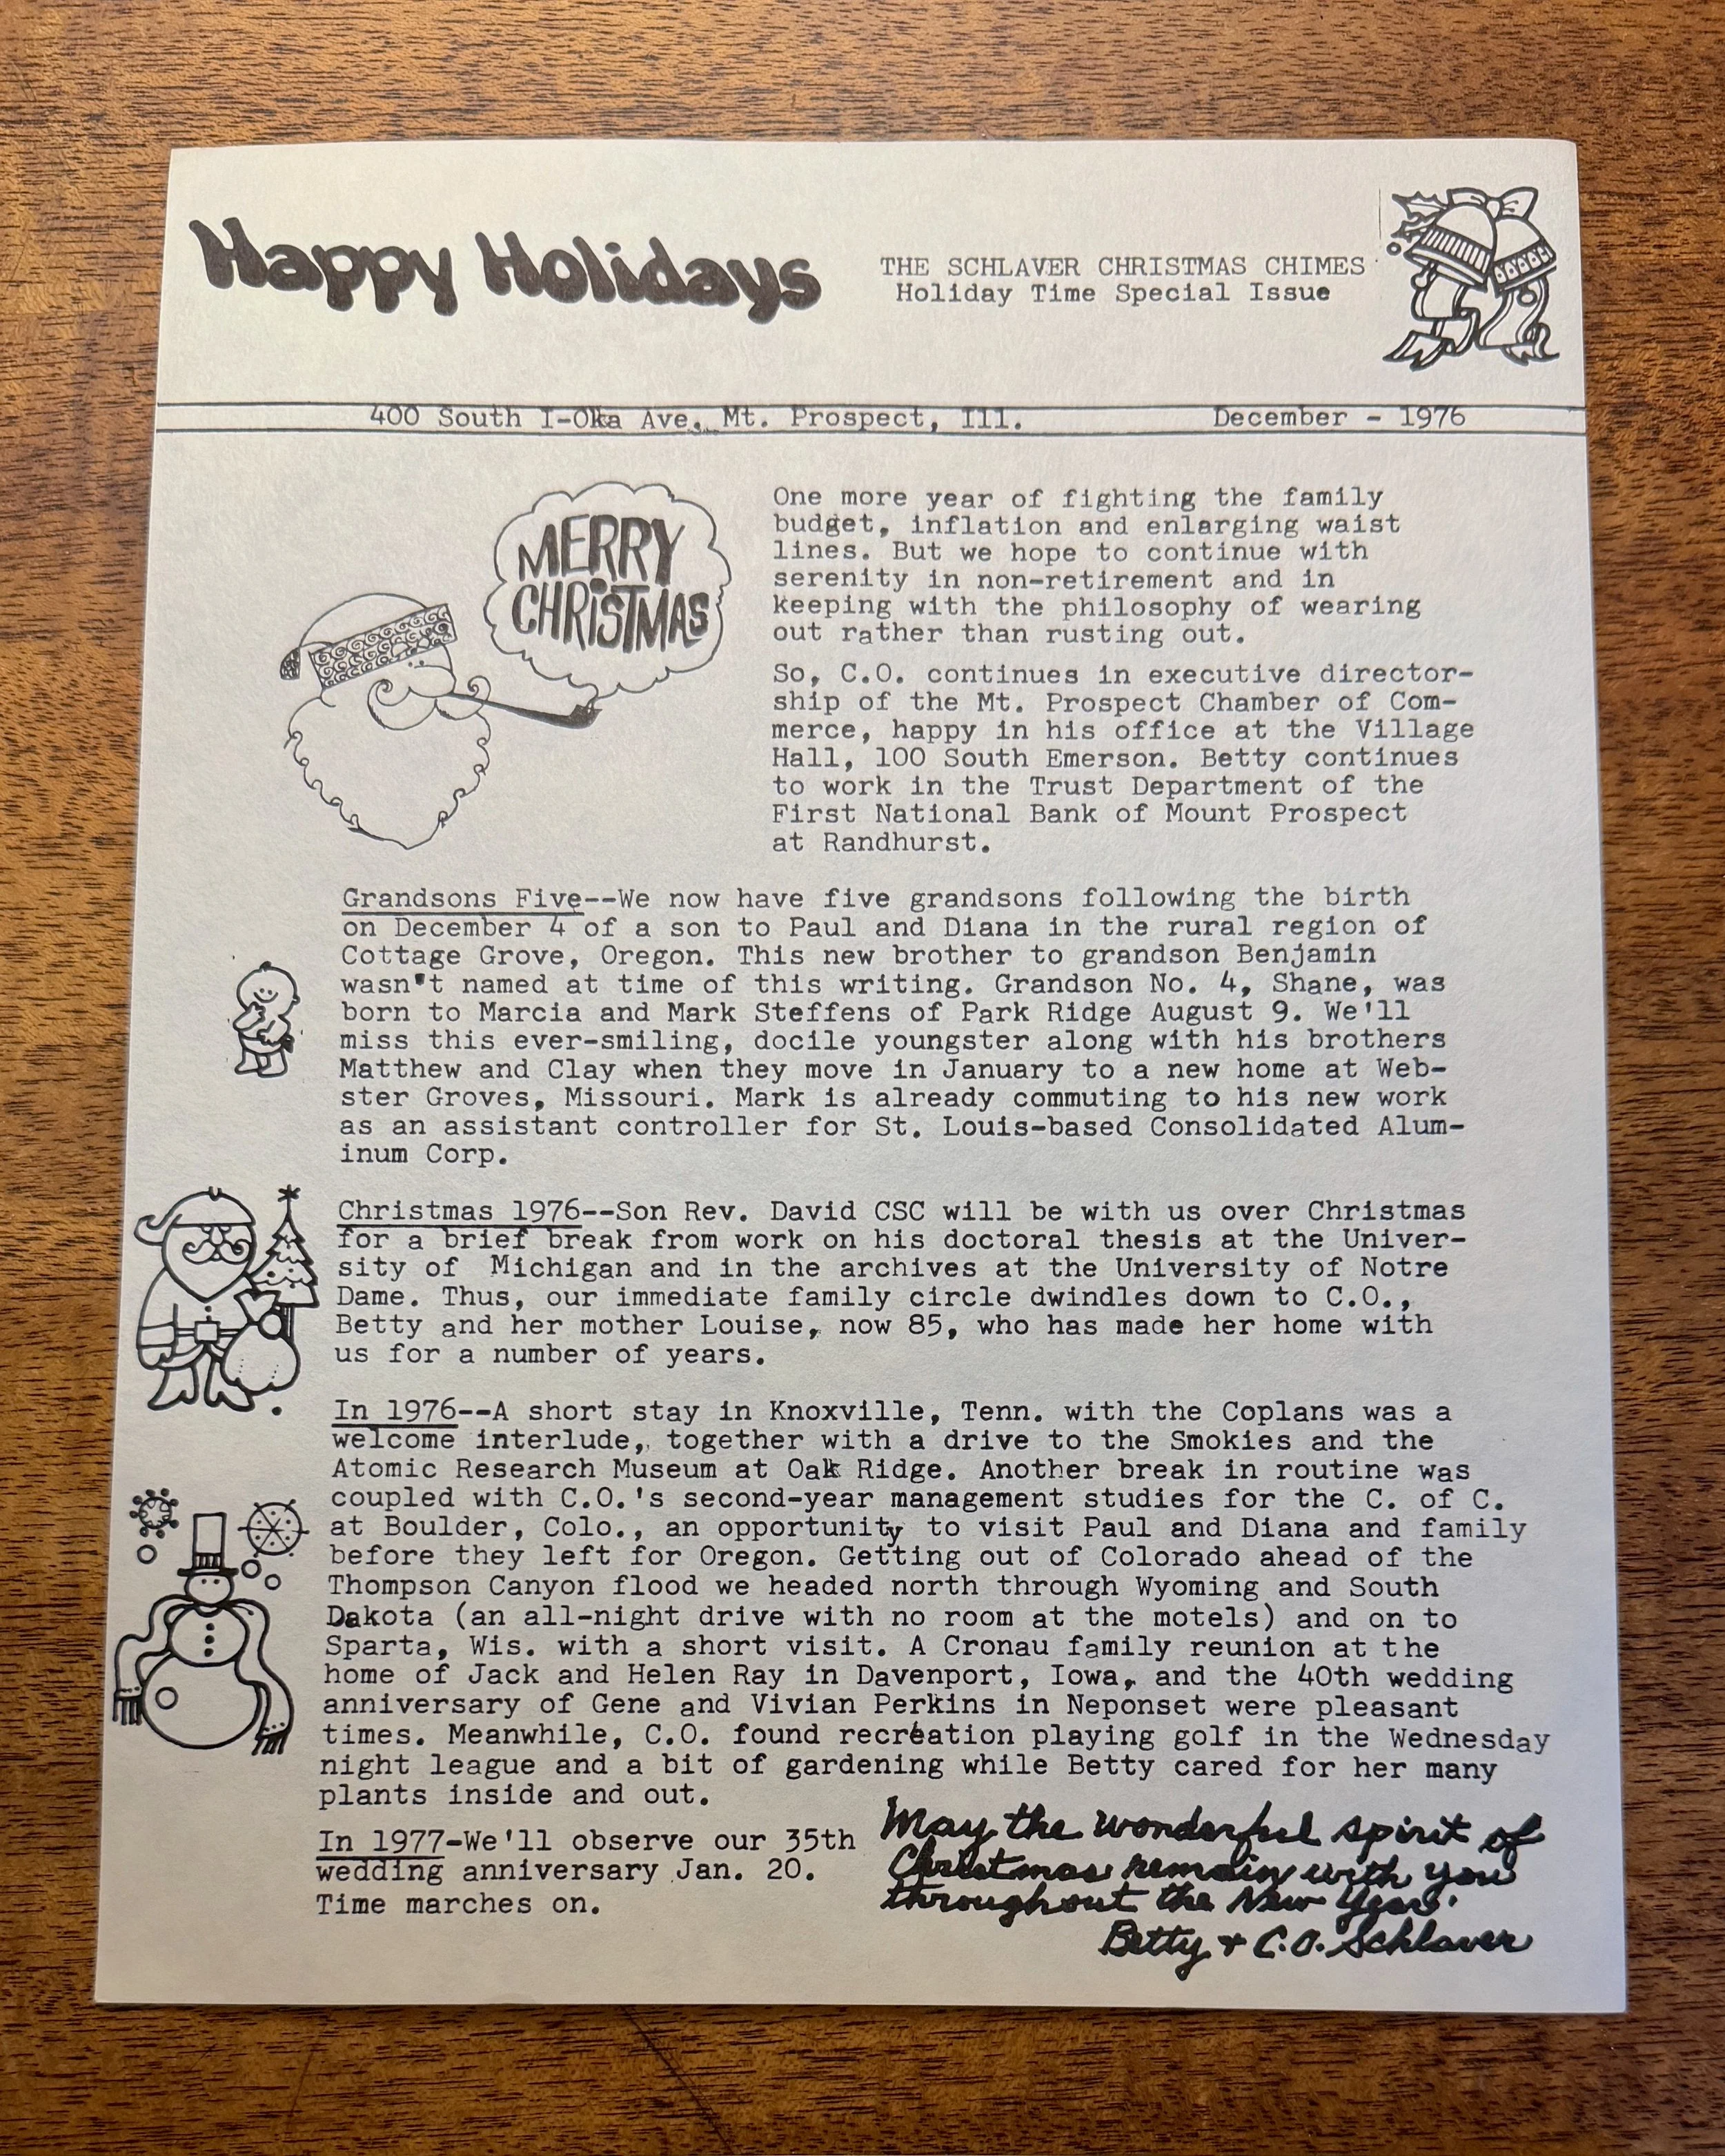 Happy Holidays
THE SCHLAVER CHRISTMAS CHIMES
Holiday Time Special Issue
400 South I-Oka Ave. Mt. Prospect, Ill. December - 1976
MERRY
CHRISTMAS
One more year of fighting the family
budget, inflation and enlarging waist
lines. But we hope to continue with
serenity in non-retirement and in
keeping with the philosophy of wearing
out rather than rusting out.
So, C.O. continues in executive director-
ship of the Mt. Prospect Chamber of Com-
merce, happy in his office at the Village
Hall, 100 South Emerson. Betty continues
to work in the Trust Department of the
First National Bank of Mount Prospect
at Randhurst.
Grandsons Five--We now have five grandsons following the birth
on December 4 of a son to Paul and Diana in the rural region of
Cottage Grove, Oregon. This new brother to grandson Benjamin
wasn't named at time of this writing. Grandson No. 4, Shane, was
born to Marcia and Mark Steffens of Park Ridge August 9. We'll
miss this ever-smiling, docile youngster along with his brothers
Matthew and Clay when they move in January to a new home at Web-
ster Groves, Missouri. Mark is already commuting to his new work
as an assistant controller for St. Louis-based Consolidated Alum-
inum Corp.
Christmas 1976--Son Rev. David CSC will be with us over Christmas
for a brief break from work on his doctoral thesis at the Univer-
sity of Michigan and in the archives at the University of Notre
Dame. Thus, our immediate family circle dwindles down to C.O.,
Betty and her mother Louise, now 85, who has made her home with
us for a number of years.
In 1976--A short stay in Knoxville, Tenn. with the Coplans was a
welcome interlude, together with a drive to the Smokies and the
Atomic Research Museum at Oak Ridge. Another break in routine was
coupled with C.O.'s second-year management studies for the C. of C.
at Boulder, Colo., an opportunity to visit Paul and Diana and family
before they left for Oregon. Getting out of Colorado ahead of the
Thompson Canyon flood we headed north through Wyoming and South
Dakota (an all-night drive with no room at the motels) and on to
Sparta, Wis. with a short visit. A Cronau family reunion at the
home of Jack and Helen Ray in Davenport, Iowa, and the 40th wedding
anniversary of Gene and Vivian Perkins in Neponset were pleasant
times. Meanwhile, C.O. found recreation playing golf in the Wednesday
night league and a bit of gardening while Betty cared for her many
plants inside and out.
In 1977-We'll observe our 35th
wedding anniversary Jan. 20.
Time marches on.
May the wonderful spirit of
Christmas remain with you
throughout the New Year.
Betty + C.O. Schlaver